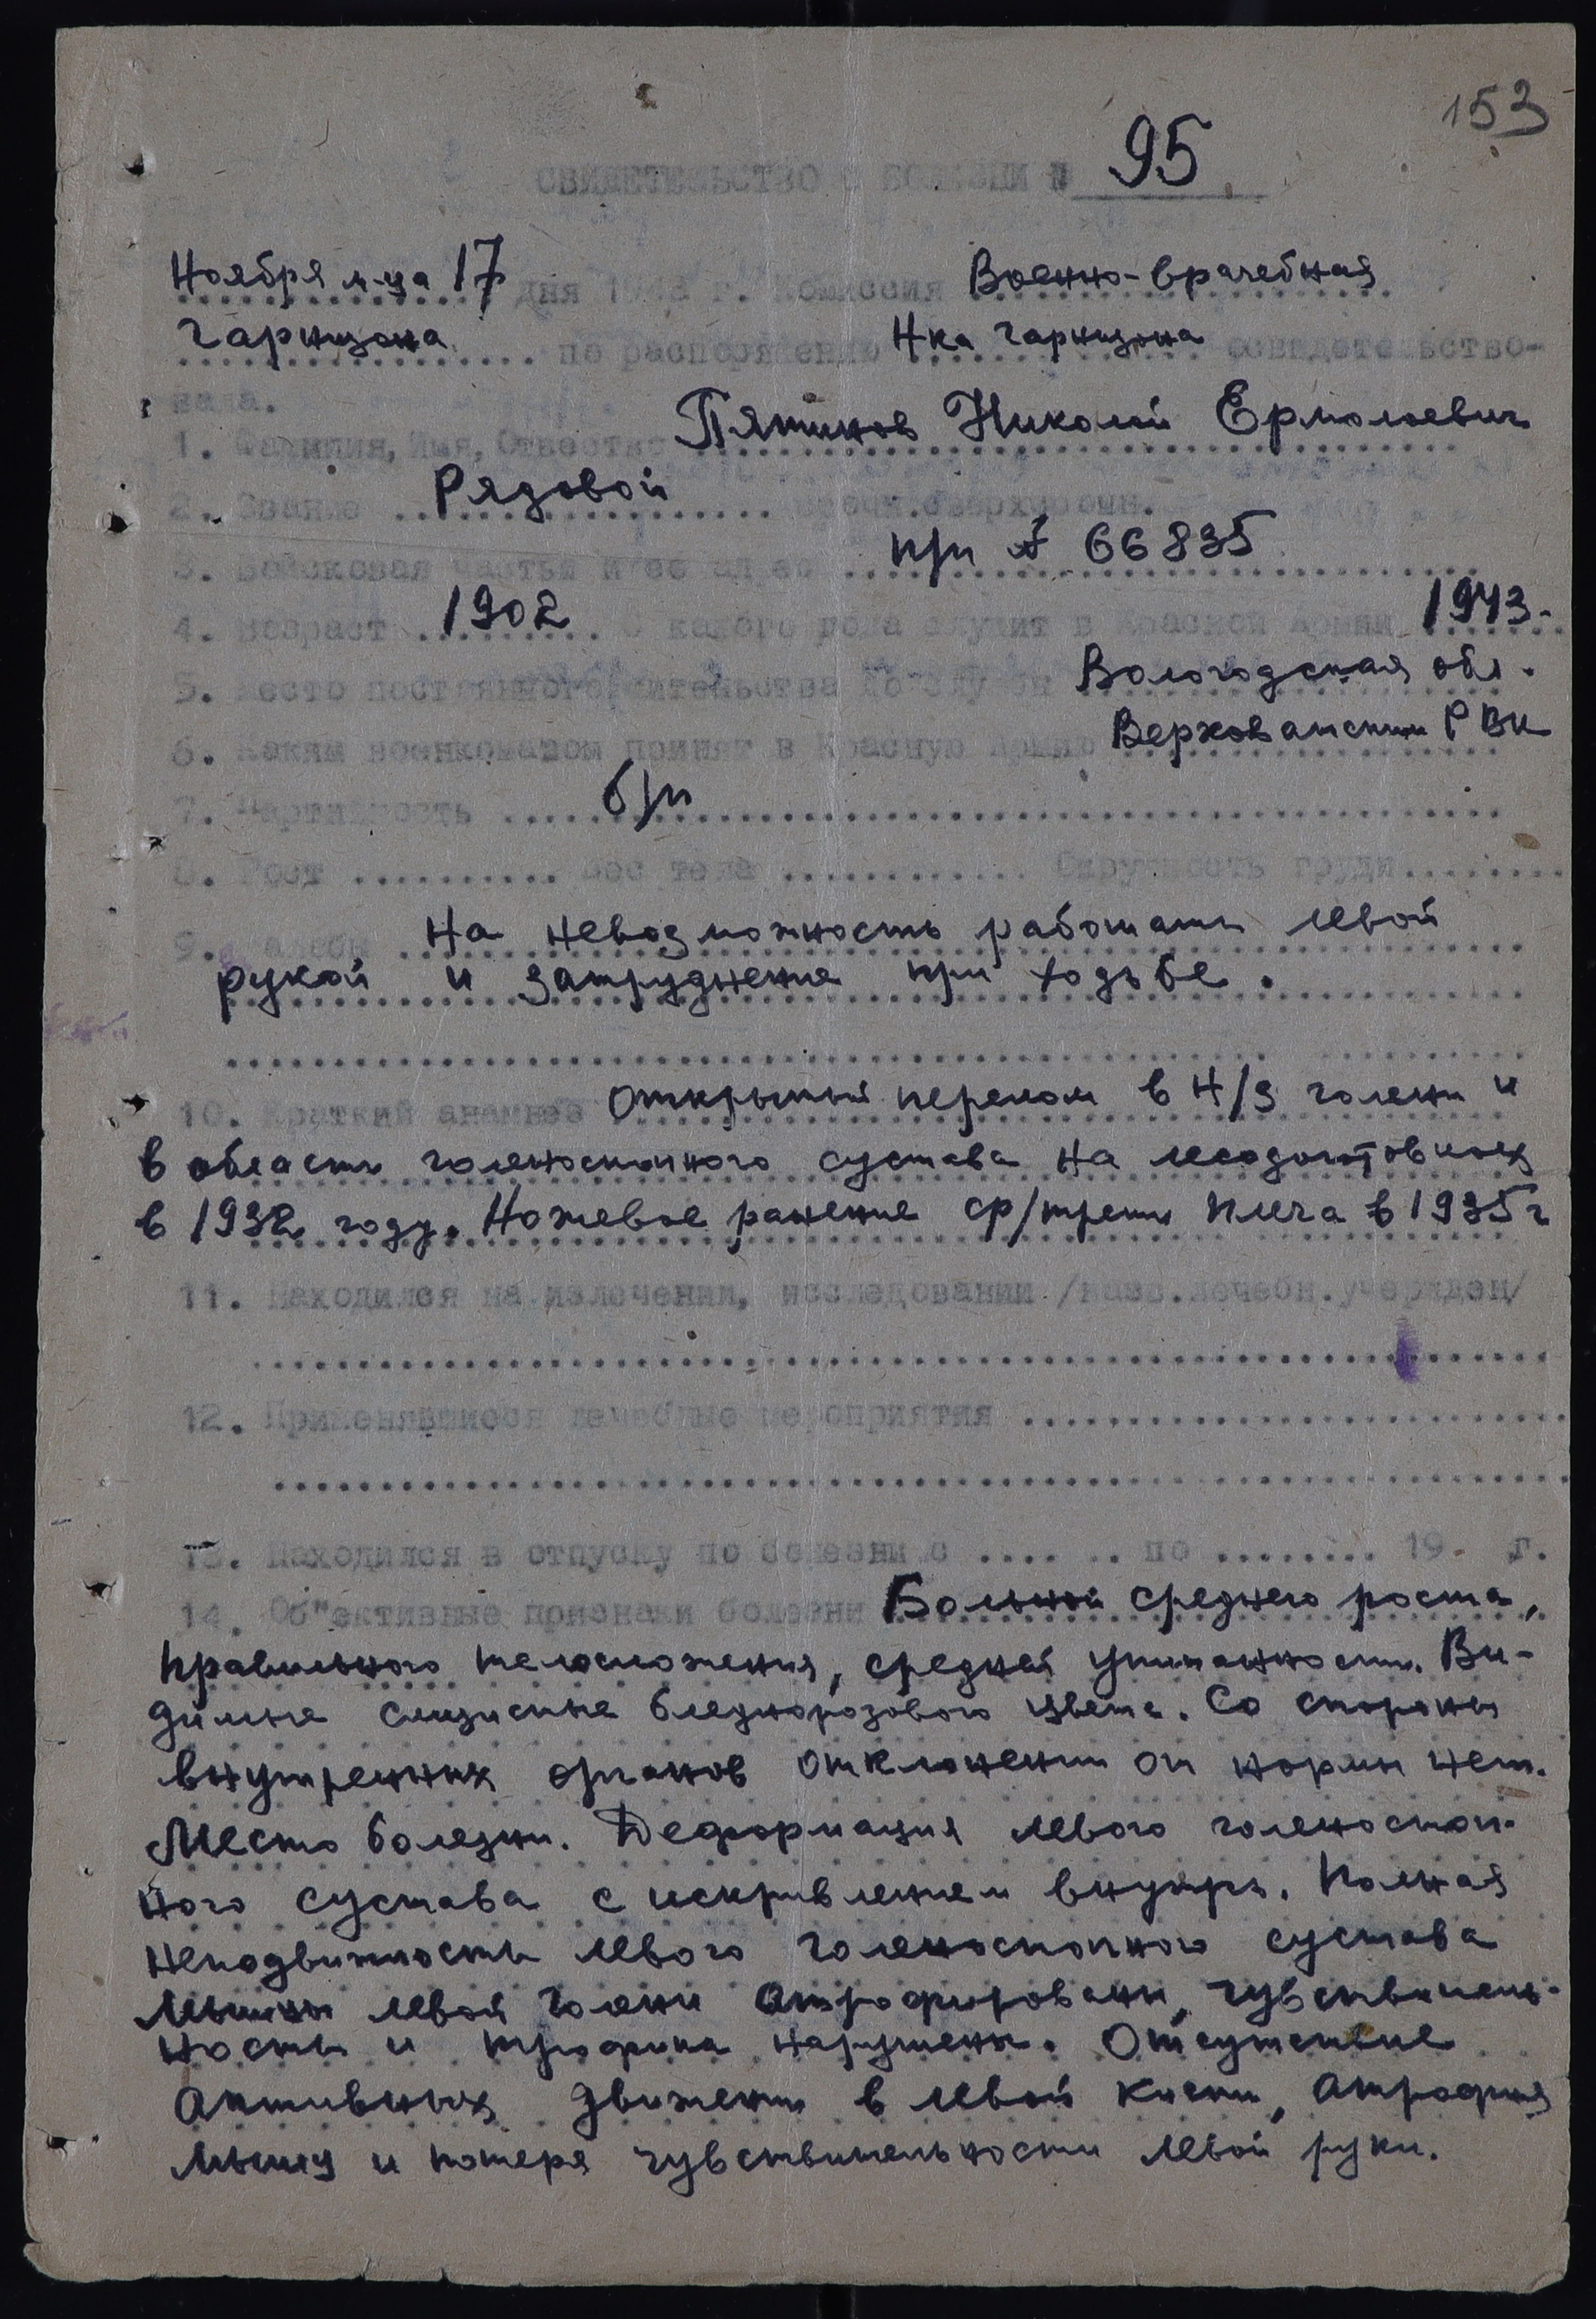 153
СВИДЕТЕЛЬСТВО О БОЛЕЗНИ № 95
Ноября м-ца 17 дня 1943 г. Комиссия Военно-врачебная
Гарнизона по распоряжению Н-ка гарнизона освидетельство-
вала.
1. Фамилия, Имя, Отчество Пятинов Николай Ермолаевич
2. Звание Рядовой срочн. сверхсрочн.
3. Войсковая часть и ее адрес при 66835
4. Возраст 1902 С какого года служит в Красной Армии 1943.
5. Место постоянного жительства до службы Вологодская обл.
6. Каким военкоматом принят в Красную Армию Верховажским РВК
7. Партийность б/п
8. Рост .......... Вес тела ............ Окружность груди........
9. Жалобы На невозможность работать левой
рукой и затруднение при ходьбе.
10. Краткий анамнез Открытый перелом в н/з голени и
в область голеностопного сустава на лесозаготовках
в 1932 году. Ножевое ранение ср/трети плеча в 1935 г
11. Находился на излечении, исследовании /назв.лечебн.учержден/
12. Применявшиеся лечебные мероприятия
13. Находился в отпуску по болезни с .... .. по ........ 19 г.
14. Об"ективные признаки болезни Больной среднего роста,
правильного телосложения, средней упитанности. Ви-
димые слизистые бледнорозового цвета. Со стороны
внутренних органов отклонении от нормы нет.
Место болезни. Деформация левого голеностоп-
ного сустава с искривлением внутрь. Полная
неподвижность левого голеностопного сустава
Мышцы левой голени атрофированы, чувствитель-
ность и трофика нарушены. Отсутствие
активных движении в левой кисти, атрофия
мышц и потеря чувствительности левой руки.